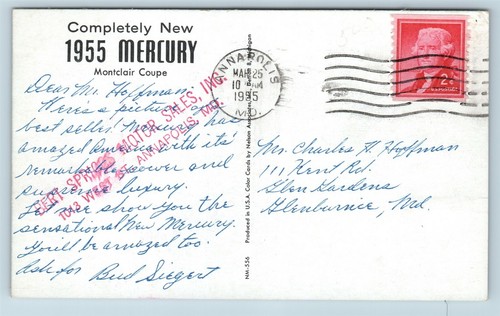 Completely New
1955 MERCURY
Montclair Coupe
Dear Mr. Hoffman:
Here's a picture of our
best seller! Mercury has
amazed America with its'
remarkable power and
supreme luxury.
Let me show you the
sensational New Mercury.
You'll be amazed too.
Ask for Bud Siegert
BERT SPRIGGS MOTOR SALES, INC.
1043 WEST ST. ANNAPOLIS, MD.
NM-556
Produced in U.S.A. Color Cards by Nelson Associates, Detroit 8, Michigan
ANNAPOLIS
MAR 25
10 AM
1955
MD.
2¢
Mr. Charles H. Hoffman
111 Kent Rd.
Glen Gardens
Glenburnie, Md.